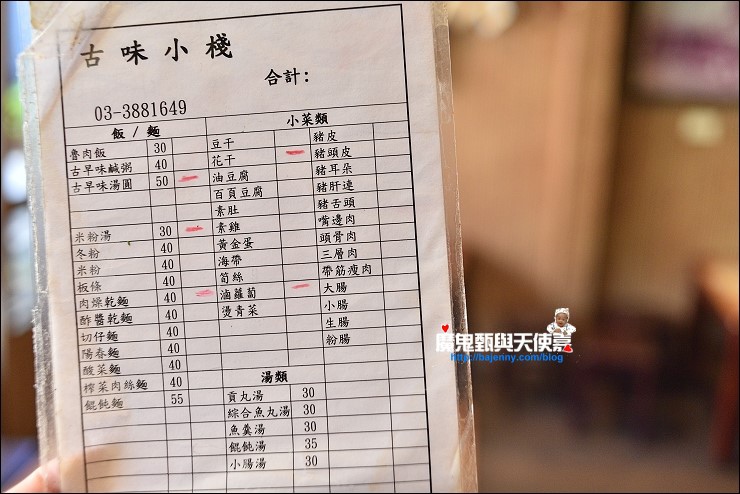 古味小棧
合計:
03-3881649
飯 / 麵
魯肉飯 30
古早味鹹粥 40
古早味湯圓 50
米粉湯 30
冬粉 40
米粉 40
板條 40
肉燥乾麵 40
酢醬乾麵 40
切仔麵 40
陽春麵 40
酸菜麵 40
榨菜肉絲麵 40
餛飩麵 55
小菜類
豆干
花干
油豆腐
百頁豆腐
素肚
素雞
黃金蛋
海帶
筍絲
滷蘿蔔
燙青菜
豬皮
豬頭皮
豬耳朵
豬肝連
豬舌頭
嘴邊肉
頭骨肉
三層肉
帶筋瘦肉
大腸
小腸
生腸
粉腸
湯類
貢丸湯 30
綜合魚丸湯 30
魚羹湯 30
餛飩湯 35
小腸湯 30
魔鬼甄與天使嘉
http://bajenny.com/blog